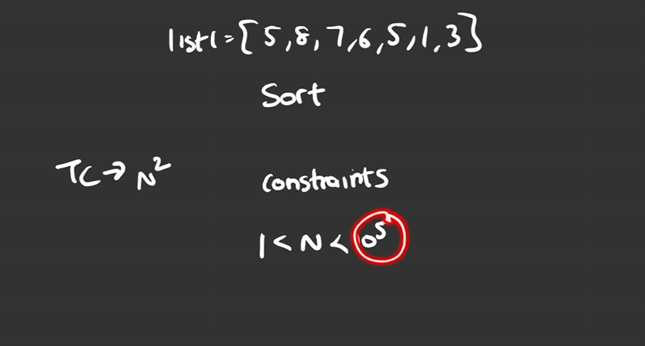 list1=[5,8,7,6,5,1,3]
Sort
TC→N²
constraints
1<N<10⁵